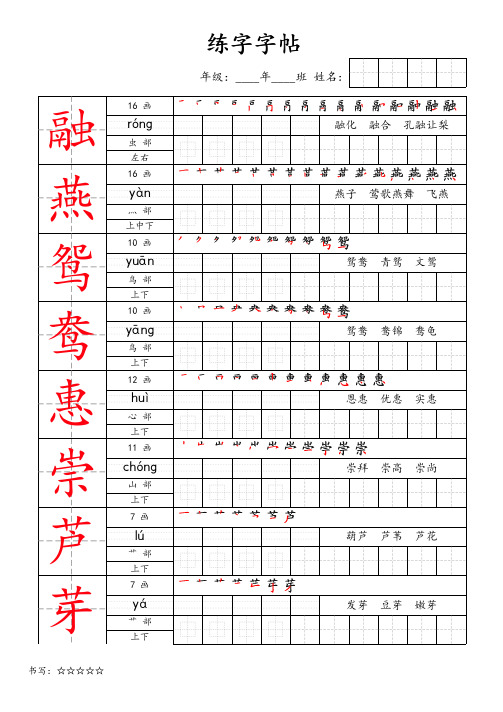 练字字帖
年级：____年____班 姓名：
融
16 画
róng
融化 融合 孔融让梨
虫 部
左右
燕
16 画
yàn
燕子 莺歌燕舞 飞燕
灬 部
上中下
鸳
10 画
yuān
鸳鸯 青鸳 文鸳
鸟 部
上下
鸯
10 画
yāng
鸳鸯 鸯锦 鸯龟
鸟 部
上下
惠
12 画
huì
恩惠 优惠 实惠
心 部
上下
崇
11 画
chóng
崇拜 崇高 崇尚
山 部
上下
芦
7 画
lú
葫芦 芦苇 芦花
艹 部
上下
芽
7 画
yá
发芽 豆芽 嫩芽
艹 部
上下
书写：☆☆☆☆☆